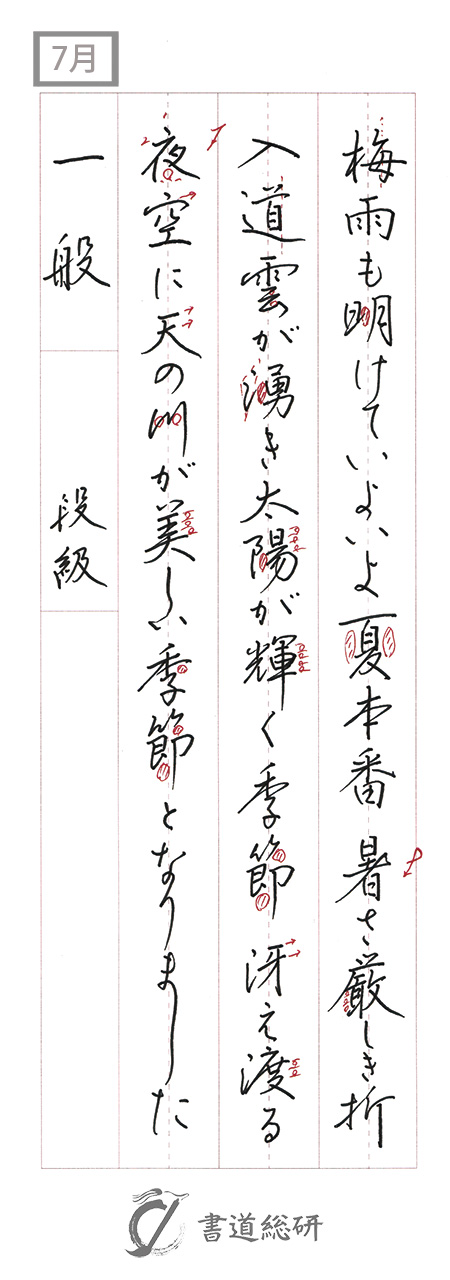 7月
梅雨も明けていよいよ夏本番 暑さ厳しき折
入道雲が湧き太陽が輝く季節 冴え渡る
夜空に天の川が美しい季節となりました
一般
段級
書道総研